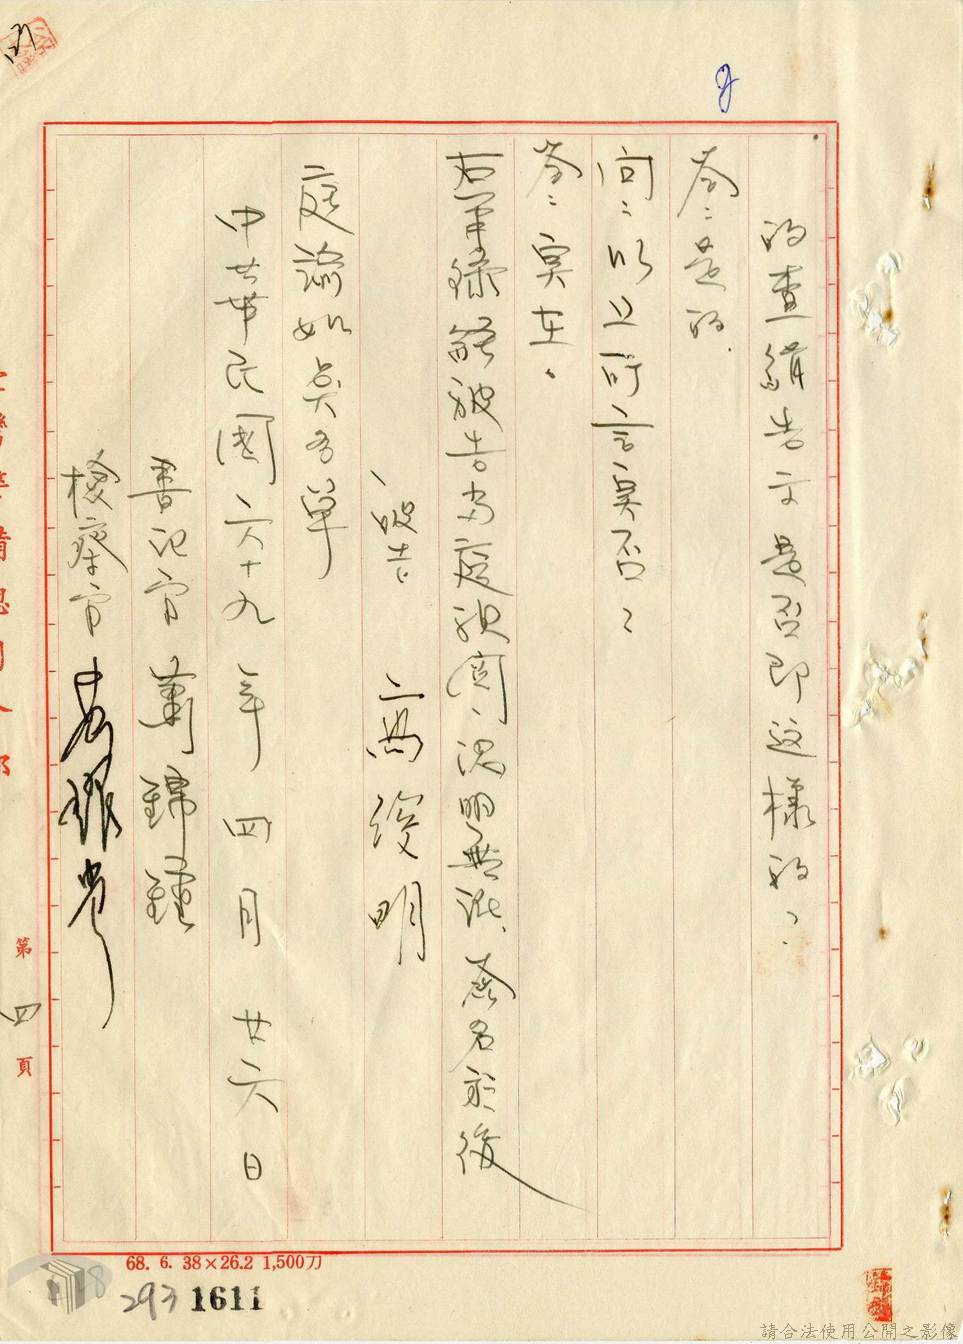 的查緝告文是否即這樣的？
答：是的。
問：以上所言實否？
答：實在。
右筆錄經被告當庭親閱、認明無訛、簽名於後
被告 高俊明
庭諭如点名單
中華民國六十九年四月廿六日
書記官 蕭錦鍾
檢察官
第四頁
68. 6. 38×26.2 1,500刀
293 1611
請合法使用公開之影像